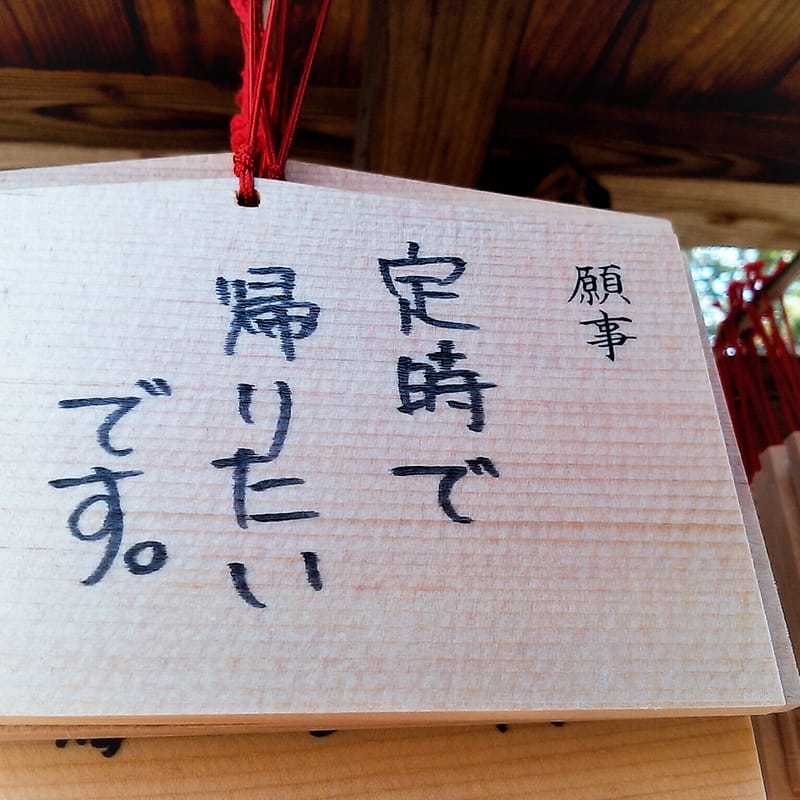 願事
定時で
帰りたい
です。